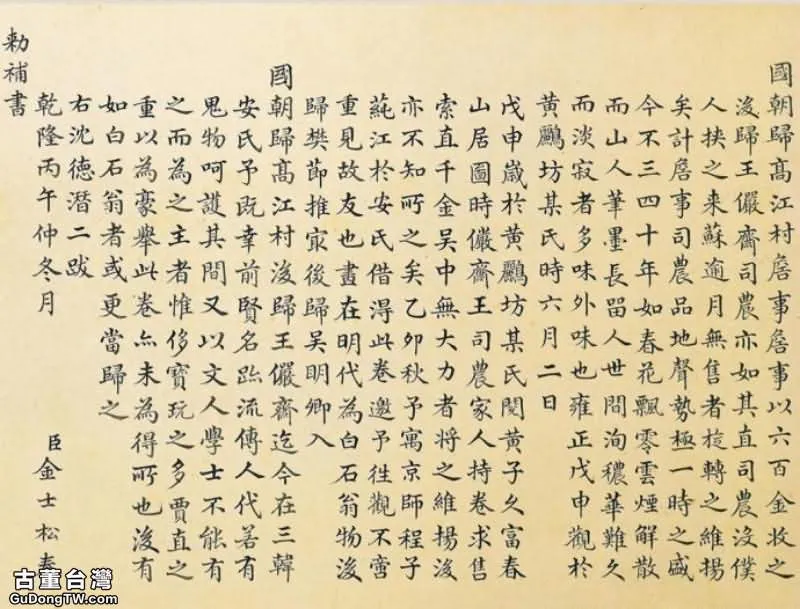 國朝歸髙江村詹事詹事以六百金收之
後歸王儼齋司農亦如其直司農沒僕
人挾之来蘇逾月無售者旋轉之維揚
矣計詹事司農品地聲勢極一時之盛
今不三四十年如春花飄零雲煙解散
而山人筆墨長留人世間洵穠華難久
而淡寂者多味外味也雍正戊申觀於
黃鸝坊某氏時六月二日
戊申歲於黃鸝坊某氏閱黃子久富春
山居圖時儼齋王司農家人持卷求售
索直千金吳中無大力者將之維揚後
亦不知所之矣乙卯秋予寓京師程子
蒓江於安氏借得此卷邀予往觀不啻
重見故友也畫在明代為白石翁物後
歸樊節推冣後歸吳明卿入
國朝歸髙江村後歸王儼齋迄今在三韓
安氏予既幸前賢名跡流傳人代若有
鬼物呵護其間又以文人學士不能有
之而為之主者惟侈寶玩之多賈直之
重以為豪舉此卷亦未為得所也後有
如白石翁者或更當歸之
右沈德潛二跋
乾隆丙午仲冬月 臣金士松奉
勅補書
古董台灣
GuDongTW.com